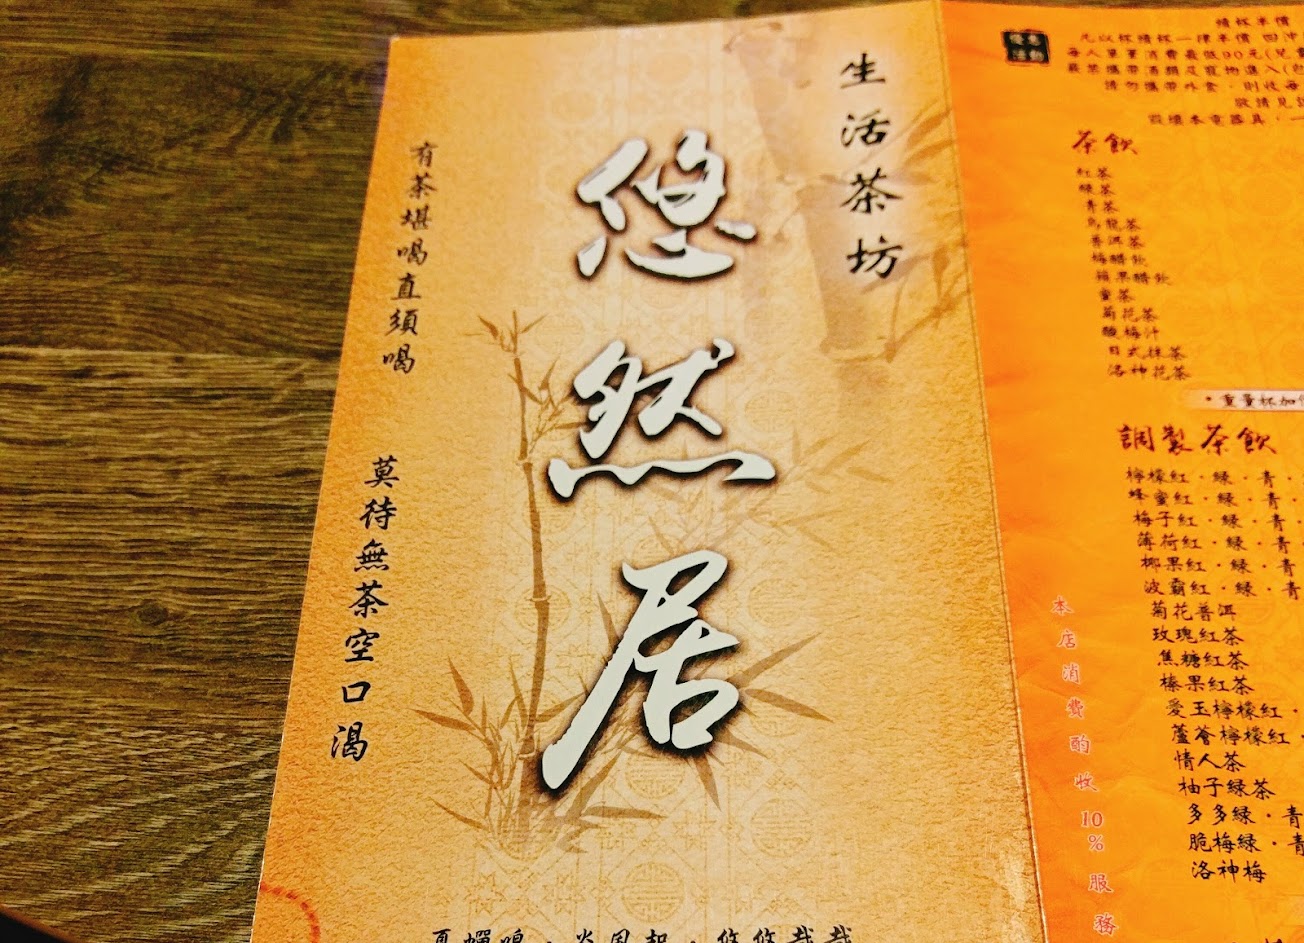 生活茶坊
悠然居
有茶堪喝直須喝
莫待無茶空口渴
夏蟬鳴．炎風起．悠悠哉哉
續杯半價
凡以杯續杯一律半價 回沖
每人單筆消費最低90元(兒
最禁攜帶酒類及寵物進入(
請勿攜帶外食．則收每
敬請見諒
毀壞本電器具．一
茶飲
紅茶
綠茶
青茶
烏龍茶
普洱茶
梅醋飲
蘋果醋飲
蜜茶
菊花茶
酸梅汁
日式抹茶
洛神花茶
・重量杯加
調製茶飲
檸檬紅．綠．青．
蜂蜜紅．綠．青．
梅子紅．綠．青．
薄荷紅．綠．青
椰果紅．綠．青
波霸紅．綠．青
菊花普洱
玫瑰紅茶
焦糖紅茶
榛果紅茶
愛玉檸檬紅．
蘆薈檸檬紅．
情人茶
柚子綠茶
多多綠．青
脆梅綠．青
洛神梅
本店消費酌收10%服務